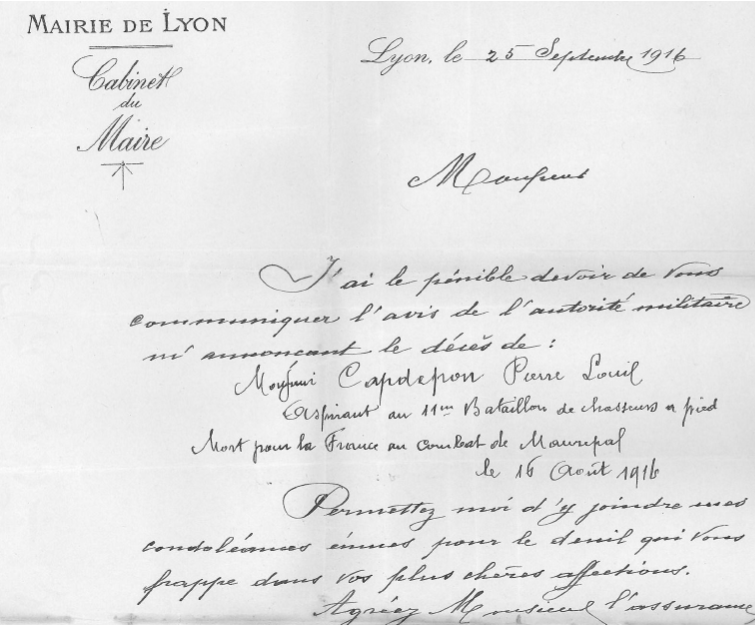 MAIRIE DE LYON
Cabinet
du
Maire
Lyon, le 25 Septembre 1916
Monsieur
J'ai le pénible devoir de vous
communiquer l'avis de l'autorité militaire
m'annoncant le décès de :
Monsieur Capdepon Pierre Louis
Aspirant au 11me Bataillon de chasseurs a pied
Mort pour la France au combat de Maurepas
le 16 Août 1916
Permettez moi d'y joindre mes
condoléances émues pour le deuil qui vous
frappe dans vos plus chères affections.
Agréez Monsieur l'assurance